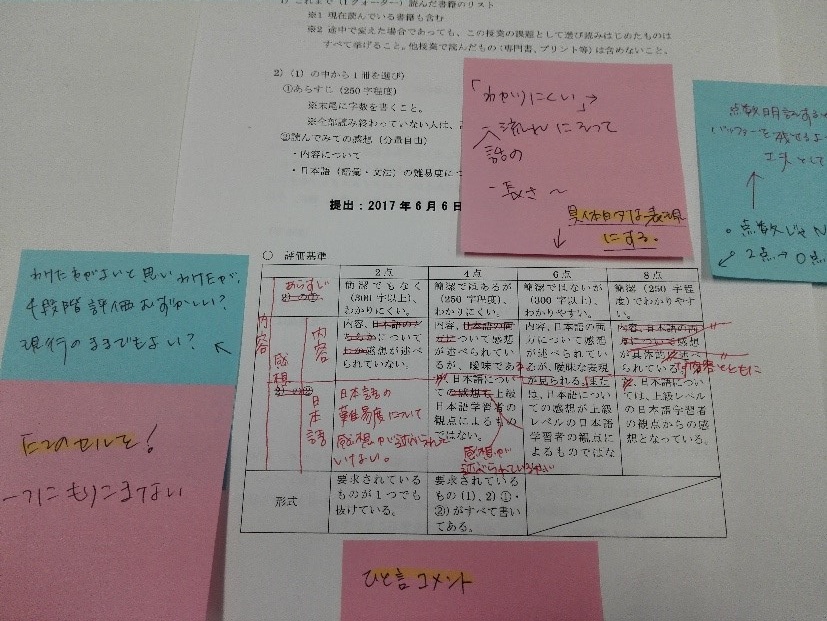 1) これまで(1クォーター)読んだ書籍のリスト
※1 現在読んでいる書籍も含む
※2 途中で変えた場合であっても、この授業の課題として選び読みはじめたものは
すべて挙げること。他授業で読んだもの(専門書、プリント等)は含めないこと。
2)(1)の中から1冊を選び
①あらすじ(250字程度)
※末尾に字数を書くこと。
※全部読み終わっていない人は、
②読んでみての感想(分量自由)
・内容について
・日本語(語彙・文法)の難易度につ
提出:2017年6月6日
「わかりにくい」→
流れにそって
話の
長さ〜
具体的な表現
にする。
点数明記すると
バッファーを残せるよ
工夫として
点数じゃN
2点→0点
わけた方がよいと思いわけたが、
4段階評価むずかしい?
現行のままでもよい?
1つのセルを!
一気にもりこまない
ひと言コメント
○ 評価基準
2点
4点
6点
8点
あらすじ
2)の①
簡潔でもなく
(300字以上)、
わかりにくい。
簡潔ではあるが、
(250字程度)、
わかりにくい。
簡潔ではないが、
(300字以上)、
わかりやすい。
簡潔(250字程
度)でわかりやす
い。
内容
感想
内容
内容、日本語のど
ちらかについて
感想が述べ
られていない。
内容、日本語の両
方について感想
が述べられてい
るが、曖昧であ
内容、日本語の両
方について感想
が述べられてい
るが、曖昧な表現
が見られる。また
内容、日本語の両
方について感想
が具体的に述べ
られている。
内容とともに
2)の②
日本語
日本語の
難易度について
感想が述べられて
いない。
、日本語につい
ての感想も上級
日本語学習者の
観点によるもの
ではない。
感想が
述べられているが
は、日本語につい
ての感想が上級
レベルの日本語
学習者の観点に
よるものではな
、日本語につい
ては、上級レベル
の日本語学習者
の観点からの感
想となっている。
形式
要求されている
ものが1つでも
抜けている。
要求されている
もの(1)、2)①・
②)がすべて書い
てある。